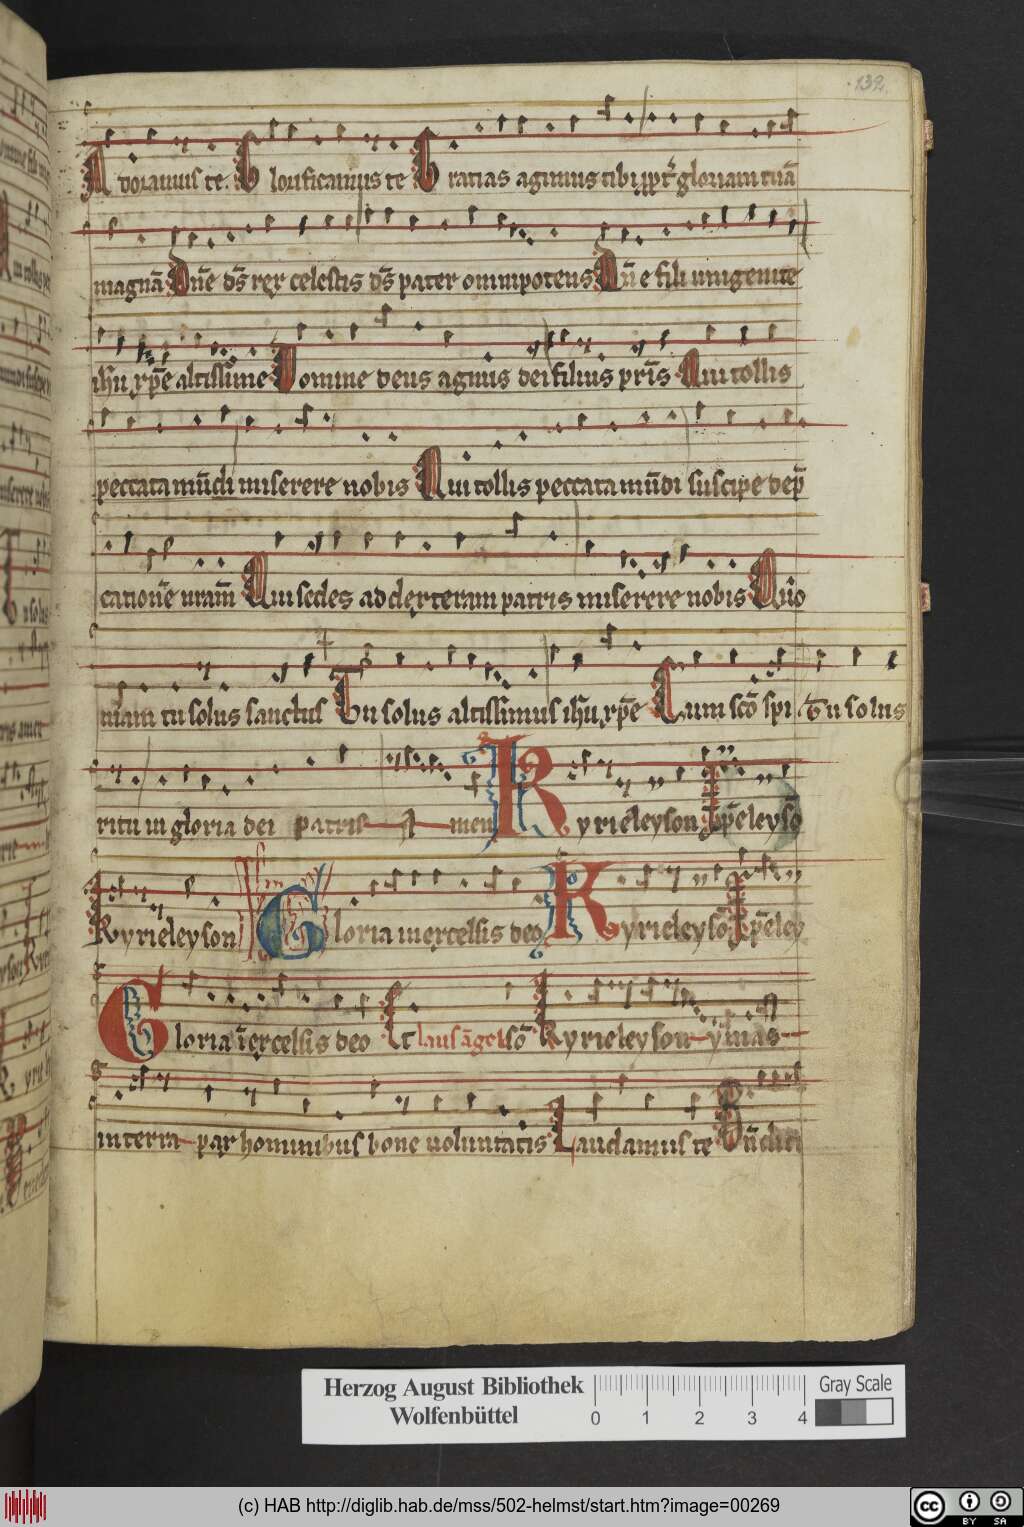 132
Adoramus te. Glorificamus te Gratias agimus tibi ppt̓ gloriam tuā
magnā Dn̄e ds̄ rex celestis ds̄ pater omnipotens Dn̄e fili unigenite
ih̄u xp̄e altissime Domine deus agnus dei filius pr̄is Qui tollis
peccata mūdi miserere nobis Qui tollis peccata mūdi suscipe dep̄
cationē nram̄ Qui sedes ad dexteram patris miserere nobis Qūo
niam tu solus sanctus Tu solus altissimus ih̄u xp̄e Cum scō spi Tu solus
ritu in gloria dei patris A men Kyrieleyson Xp̄eleysō
Kyrieleyson Gloria in excelsis deo Kyrieleysō Xp̄eley
Gloria ī excelsis deo sō Kyrieleyson
in terra pax hominibus bone voluntatis Laudamus te
Herzog August Bibliothek
Wolfenbüttel
0 1 2 3 4
Gray Scale
(c) HAB http://diglib.hab.de/mss/502-helmst/start.htm?image=00269
cc BY SA